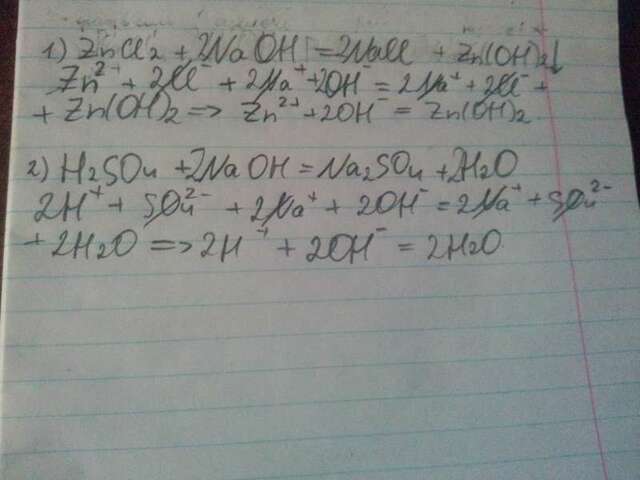 1) ZnCl2 + 2NaOH = 2NaCl + Zn(OH)2↓
Zn²⁺ + 2Cl⁻ + 2Na⁺ + 2OH⁻ = 2Na⁺ + 2Cl⁻ +
+ Zn(OH)2 => Zn²⁺ + 2OH⁻ = Zn(OH)2
2) H2SO4 + 2NaOH = Na2SO4 + 2H2O
2H⁺ + SO4²⁻ + 2Na⁺ + 2OH⁻ = 2Na⁺ + SO4²⁻
+ 2H2O => 2H⁺ + 2OH⁻ = 2H2O